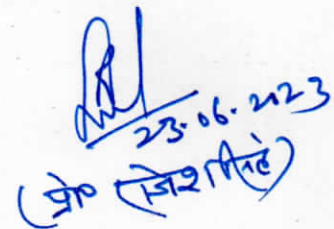 23.06.2023
(प्रो० राजेश सिंह)